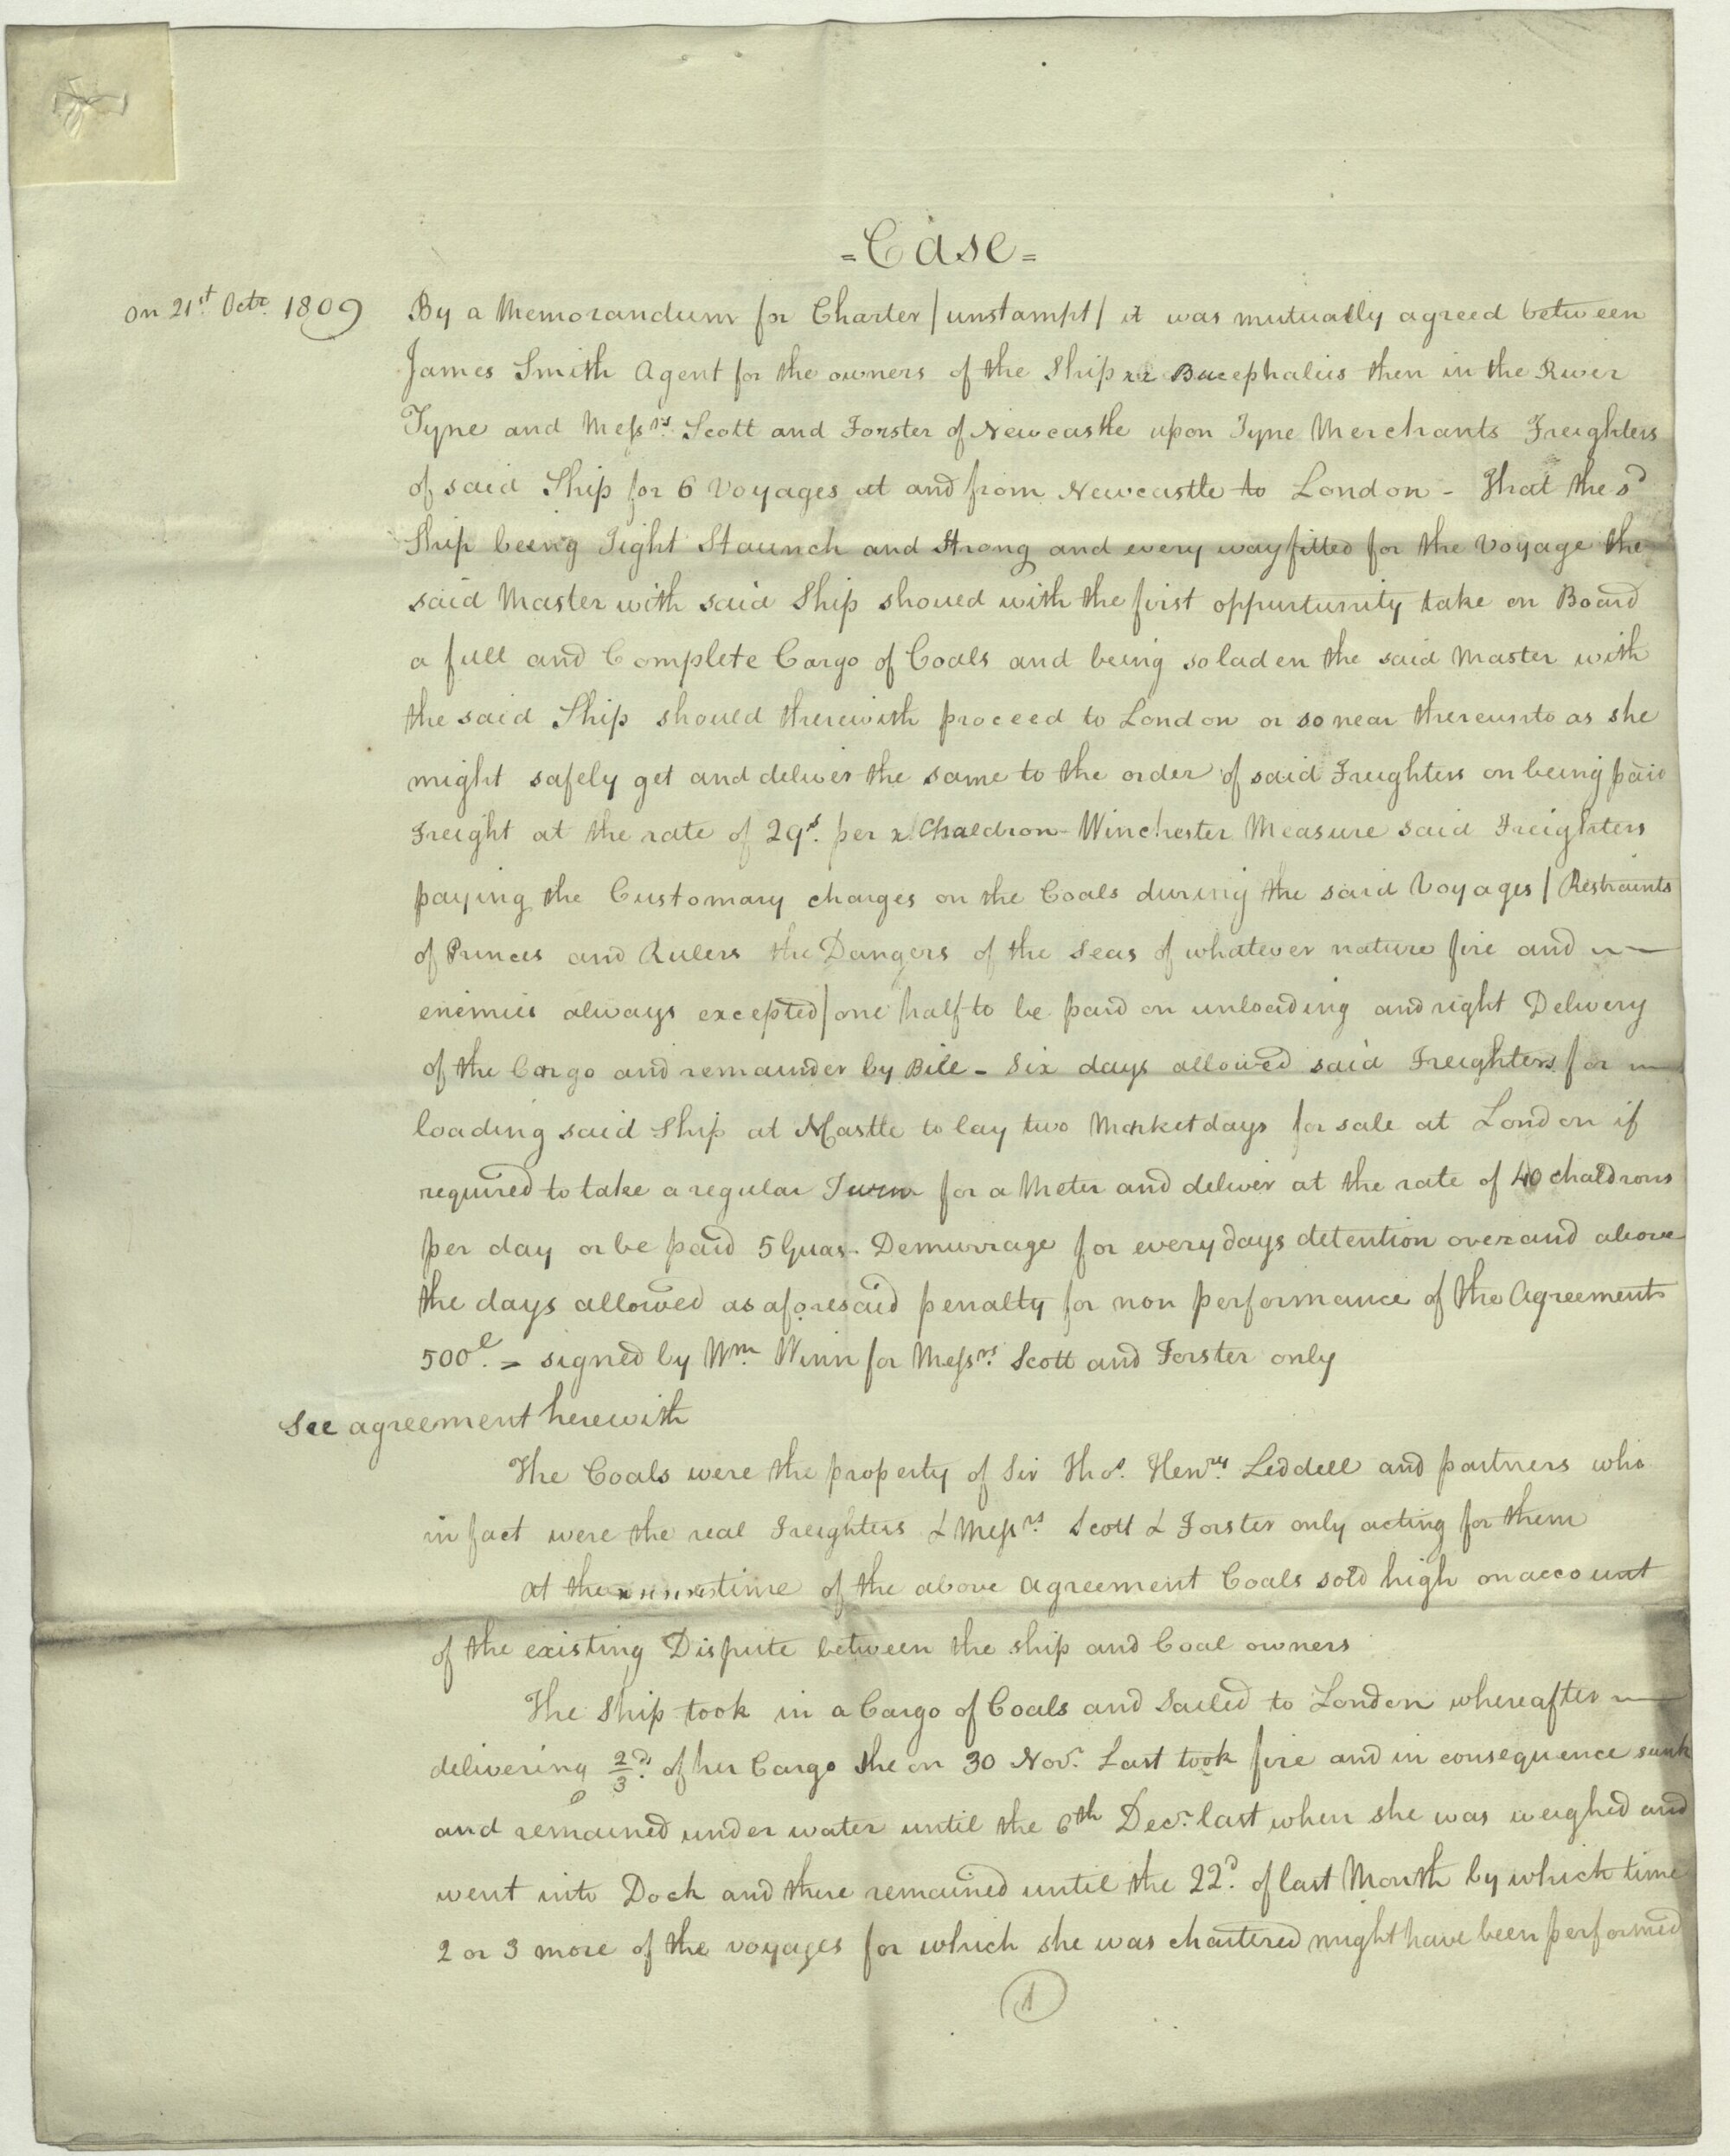 = Case =
on 21st. Octr. 1809 By a Memorandum for Charter / unstampt / it was mutually agreed between
James Smith Agent for the owners of the Ship Bucephalus then in the River
Tyne and Messrs. Scott and Forster of Newcastle upon Tyne Merchants Freighters
of said Ship for 6 Voyages at and from Newcastle to London - That the sd
Ship being Tight Staunch and Strong and every way fitted for the Voyage the
said Master with said Ship should with the first oppurtunity take on Board
a full and Complete Cargo of Coals and being so laden the said Master with
the said Ship should therewith proceed to London or so near thereunto as she
might safely get and deliver the same to the order of said Freighters on being paid
Freight at the rate of 29s. per Chaldron Winchester Measure said Freighters
paying the Customary charges on the Coals during the said Voyages / Restraints
of Princes and Rulers the Dangers of the Seas of whatever nature fire and
enemies always excepted / one half to be paid on unloading and right Delivery
of the Cargo and remainder by Bill - Six days allowed said Freighters for
loading said Ship at NCastle to lay two Market days for sale at London if
required to take a regular Turn for a Meter and deliver at the rate of 40 chaldrons
per day or be paid 5 Guas. Demurrage for every days detention over and above
the days allowed as aforesaid penalty for non performance of the Agreement
500l. = signed by Wm. Winn for Messrs. Scott and Forster only
See agreement herewith
The Coals were the property of Sir Thos. Henry Leddell and partners who
in fact were the real Freighters & Messrs. Scott & Forster only acting for them
at the time of the above agreement Coals sold high on account
of the existing Dispute between the ship and Coal owners
The Ship took in a Cargo of Coals and Sailed to London whereafter
delivering 2/3ds. of her Cargo She on 30 Novr. Last took fire and in consequence sunk
and remained under water until the 6th Decr. last when she was weighed and
went into Dock and there remained until the 22d. of last Month by which time
2 or 3 more of the voyages for which she was chartered might have been performed
1